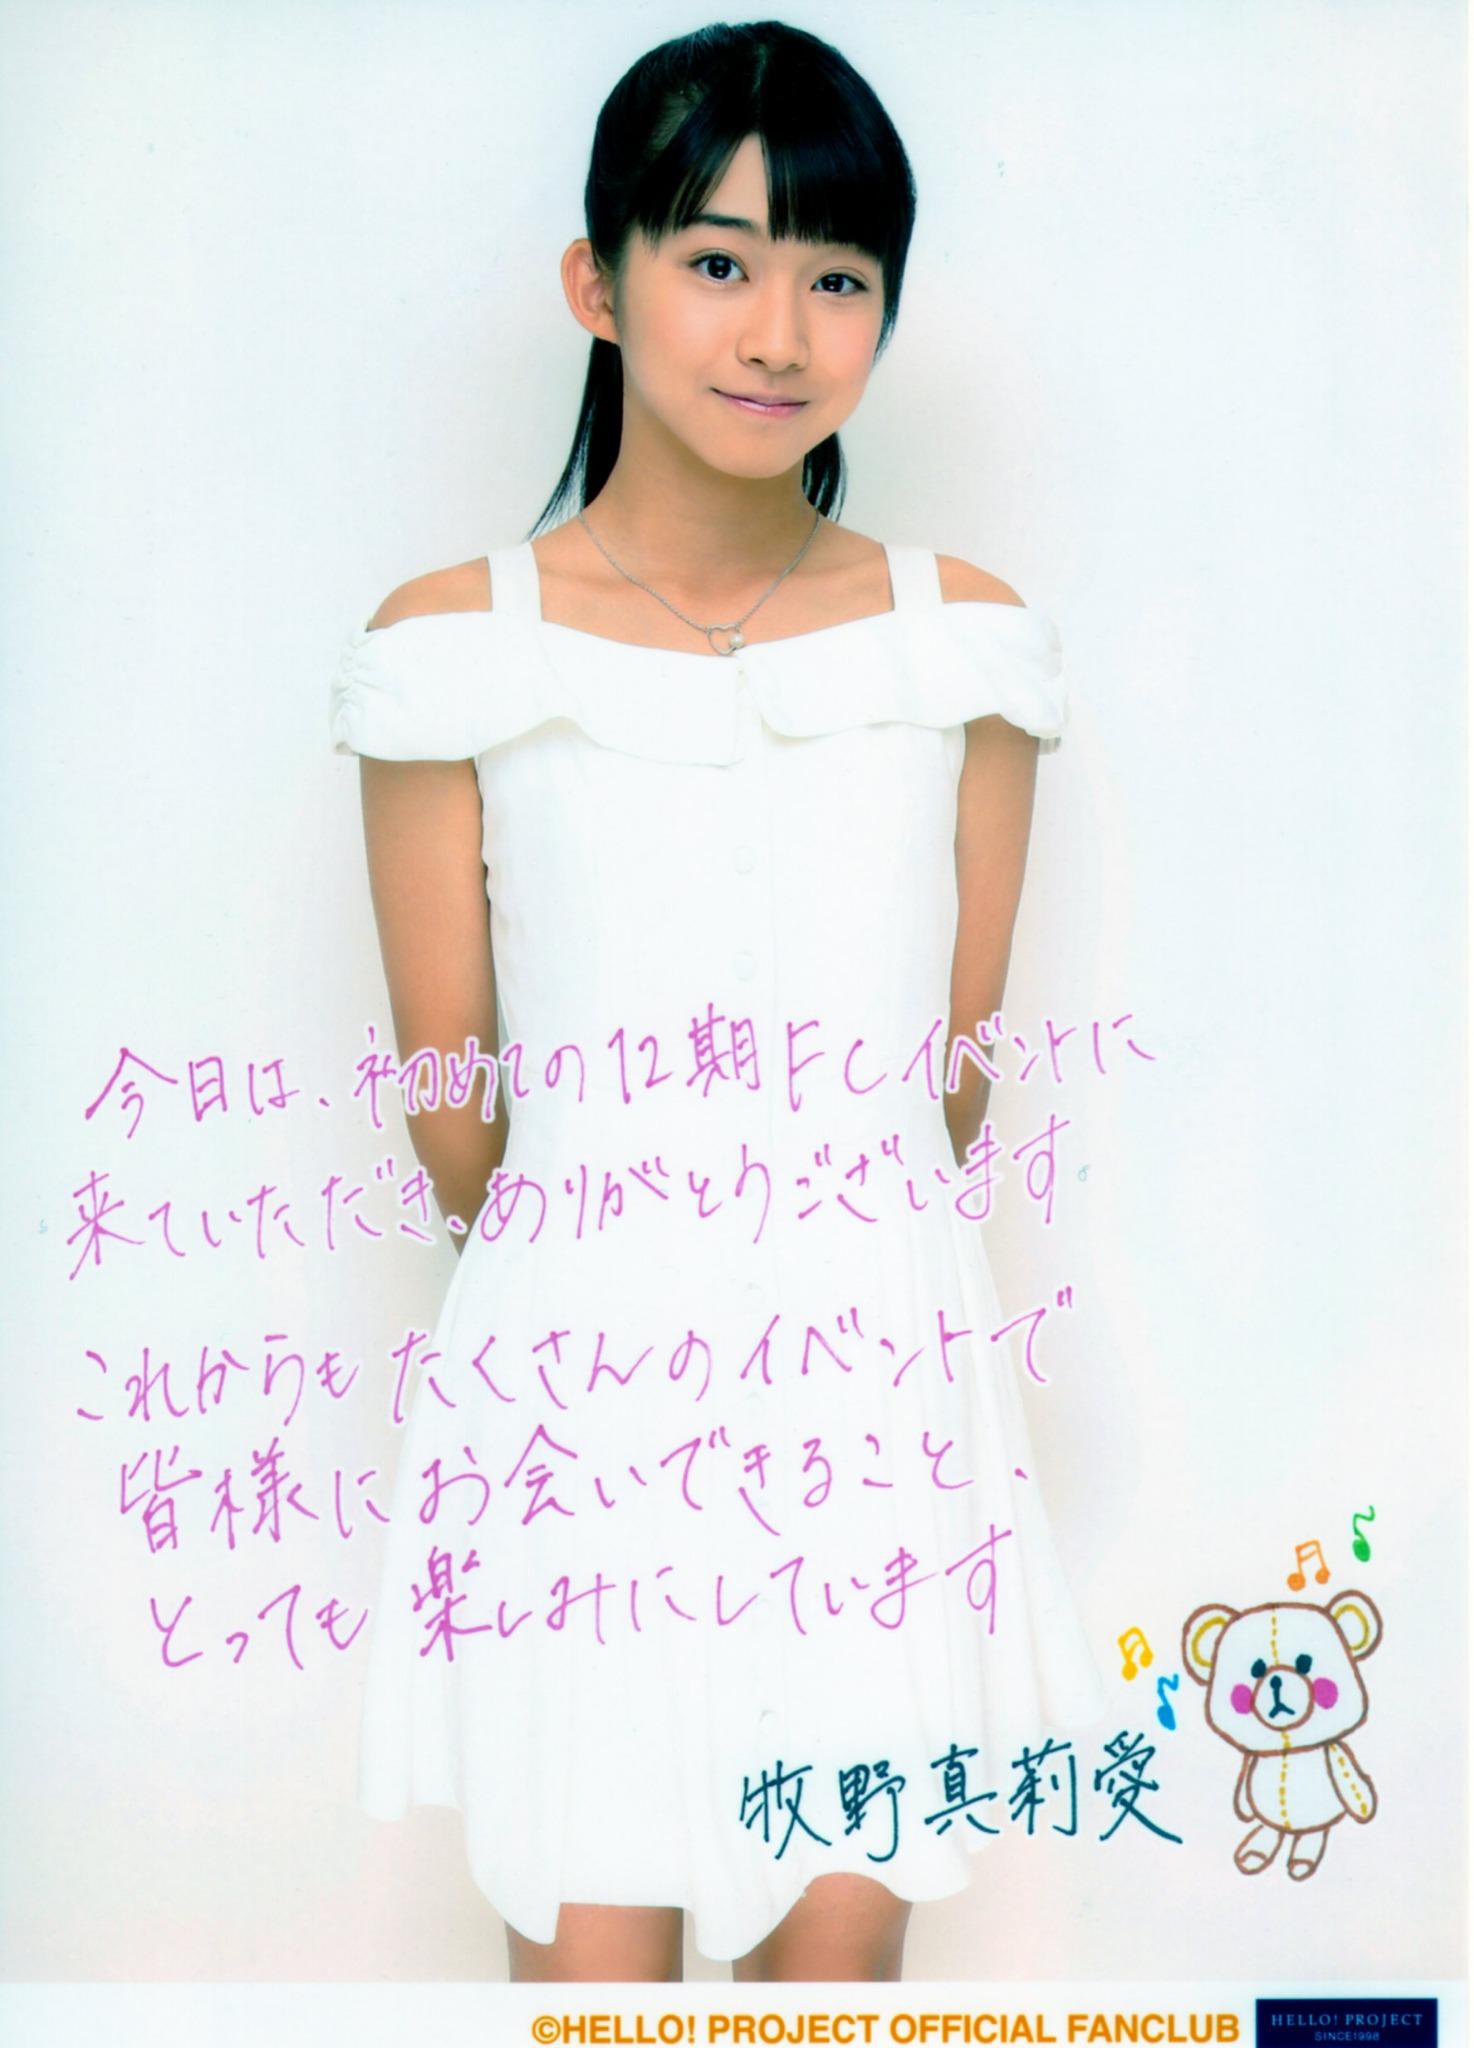 今日は、初めての12期FCイベントに
来ていただき、ありがとうございます。
これからもたくさんのイベントで
皆様にお会いできること、
とっても楽しみにしています
牧野真莉愛
©HELLO! PROJECT OFFICIAL FANCLUB
HELLO! PROJECT
SINCE1998